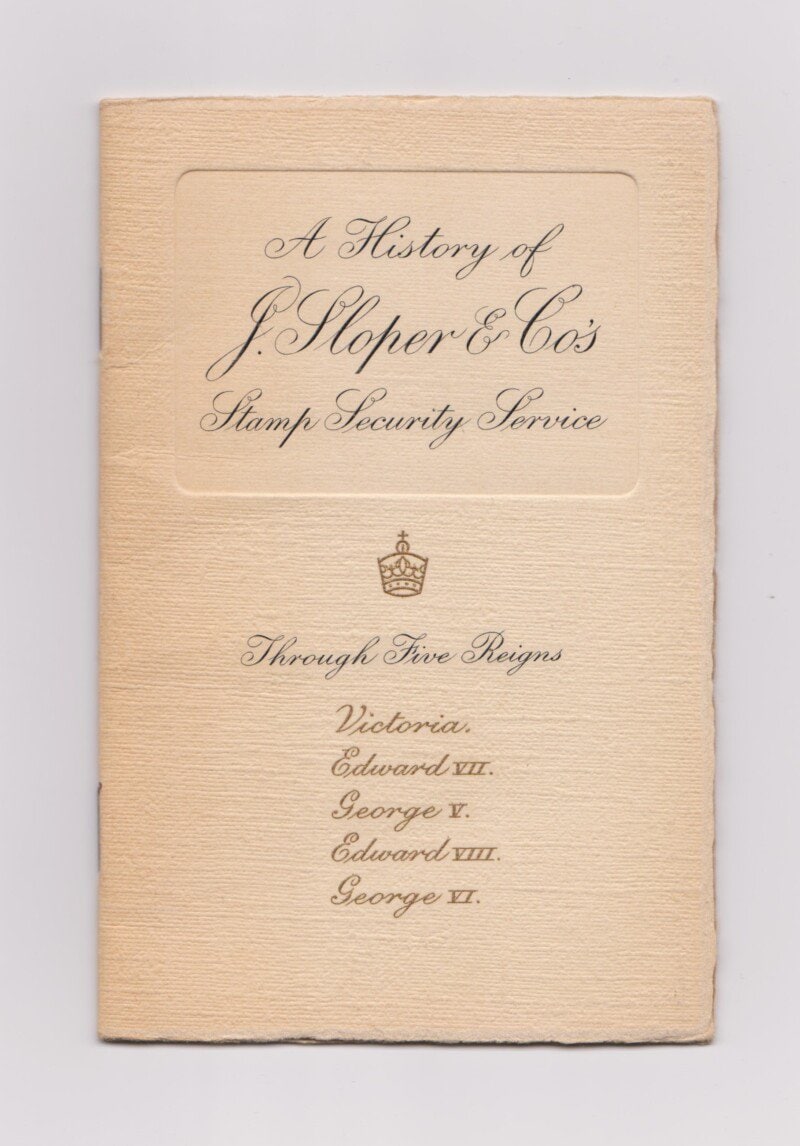 A History of
J. Sloper & Co's
Stamp Security Service
Through Five Reigns
Victoria.
Edward VII.
George V.
Edward VIII.
George VI.